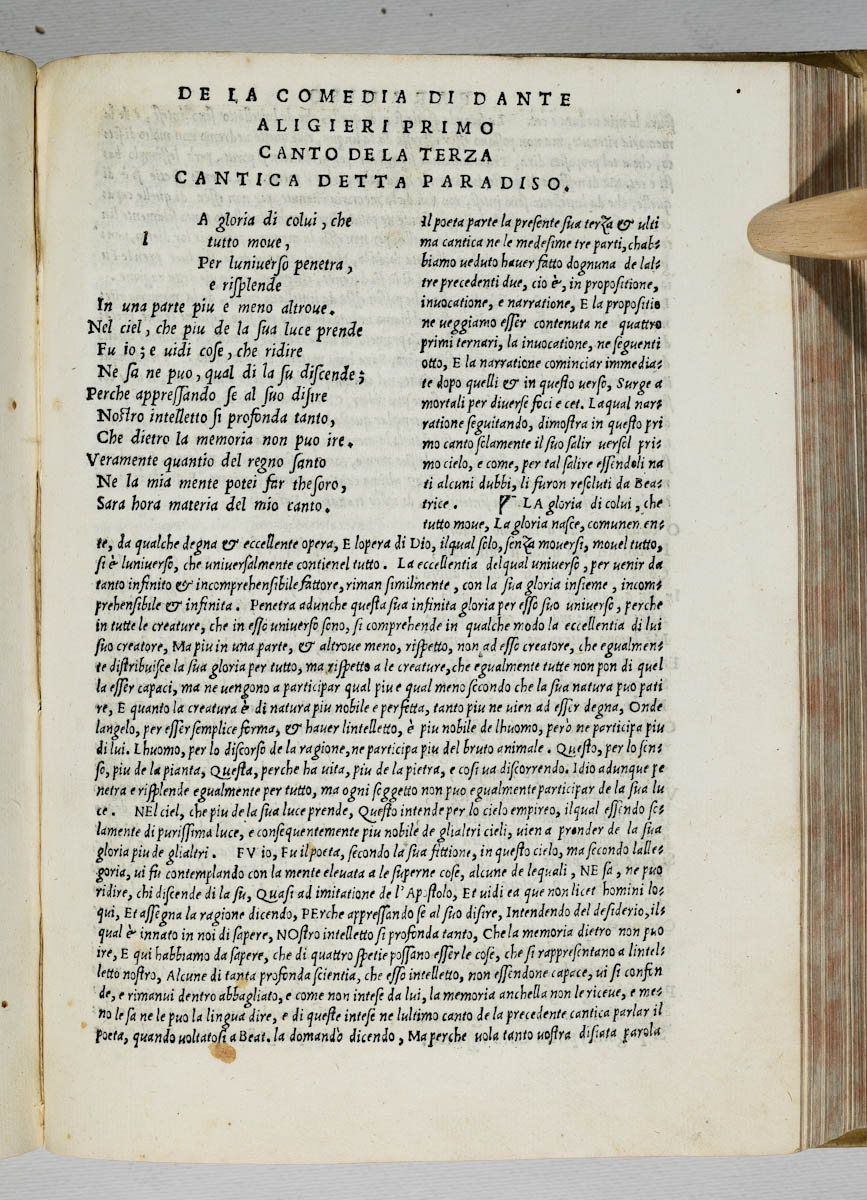 DE LA COMEDIA DI DANTE
ALIGIERI PRIMO
CANTO DE LA TERZA
CANTICA DETTA PARADISO.
l
A gloria di colui, che
tutto move,
Per luniverso penetra,
e risplende
In una parte piu e meno altroue.
Nel ciel, che piu de la sua luce prende
Fu io; e uidi cose, che ridire
Ne sa ne puo, qual di la su discende;
Perche appressando se al suo disire
Nostro intelletto si profonda tanto,
Che dietro la memoria non puo ire.
Veramente quantio del regno santo
Ne la mia mente potei far thesoro,
Sara hora materia del mio canto.
Il poeta parte la presente sua terza & ulti
ma cantica ne le medesime tre parti, chab-
biamo veduto hauer fatto dognuna de lal-
tre precedenti due, cio è, in propositione,
invocatione, e narratione, E la propositio
ne ueggiamo esser contenuta ne quattro
primi ternari, la inuocatione, ne seguenti
otto, E la narratione cominciar immedia-
te dopo quelli & in questo verso, Surge a
mortali per diverse foci e cet. La qual nar-
ratione seguitando, dimostra in questo pri
mo canto solamente il suo salir versel pri-
mo cielo, e come, per tal salire essendoli na
ti alcuni dubbi, li furon resoluti da Bea-
trice. LA gloria di colui, che
tutto moue, La gloria nasce, comunemen-
te, da qualche degna & eccellente opera, E lopera di Dio, ilqual solo, senza mouersi, mouel tutto,
si è luniuerso, che uniuersalmente contienel tutto. La eccellentia delqual uniuerso, per uenir da
tanto infinito & incomprehensibile fattore, riman similmente, con la sua gloria insieme, incom-
prehensibile & infinita. Penetra adunche questa sua infinita gloria per esso suo uniuerso, perche
in tutte le creature, che in esso uniuerso sono, si comprehende in qualche modo la eccellentia di lui
suo creatore, Ma piu in una parte, & altroue meno, rispetto, non ad esso creatore, che egualmen-
te distribuisce la sua gloria per tutto, ma rispetto a le creature, che egualmente tutte non pon di quel
la esser capaci, ma ne uengono a participar qual piu e qual meno secondo che la sua natura puo pati
re, E quanto la creatura è di natura piu nobile e perfetta, tanto piu ne uien ad esser degna, Onde
langelo, per esser semplice forma, & hauer lintelletto, è piu nobile de lhuomo, però ne participa piu
di lui. Lhuomo, per lo discorso de la ragione, ne participa piu del bruto animale. Questo, per lo sen-
so, piu de la pianta, Questa, perche ha uita, piu de la pietra, e cosi ua discorrendo. Idio adunque pe
netra e risplende egualmente per tutto, ma ogni soggetto non puo egualmente participar de la sua lu
ce. NEl ciel, che piu de la sua luce prende, Questo intende per lo cielo empireo, ilqual essendo so-
lamente di purissima luce, e consequentemente piu nobile de glialtri cieli, uien a prender de la sua
gloria piu de glialtri. FV io, Fu il poeta, secondo la sua fittione, in questo cielo, ma secondo lalle-
goria, ui fu contemplando con la mente eleuata a le superne cose, alcune de lequali, NE sa, ne puo
ridire, chi discende di la su, Quasi ad imitatione de l'Apostolo, Et uidi ea que non licet homini lo-
qui, Et assegna la ragione dicendo, PErche appressando se al suo disire, Intendendo del desiderio, il-
qual è innato in noi di sapere, NOstro intelletto si profonda tanto, Che la memoria dietro non puo
ire, E qui habbiamo da sapere, che di quattro spetie possano esser le cose, che si rappresentano a lintel-
letto nostro, Alcune di tanta profonda scientia, che esso intelletto, non essendone capace, ui si confon
de, e rimanui dentro abbagliato, e come non intese da lui, la memoria anchella non le riceue, e me-
no le sa ne le puo la lingua dire, e di queste intese ne lultimo canto de la precedente cantica parlar il
poeta, quando uoltatosi a Beat. la domandò dicendo, Ma perche uola tanto uostra disiata parola